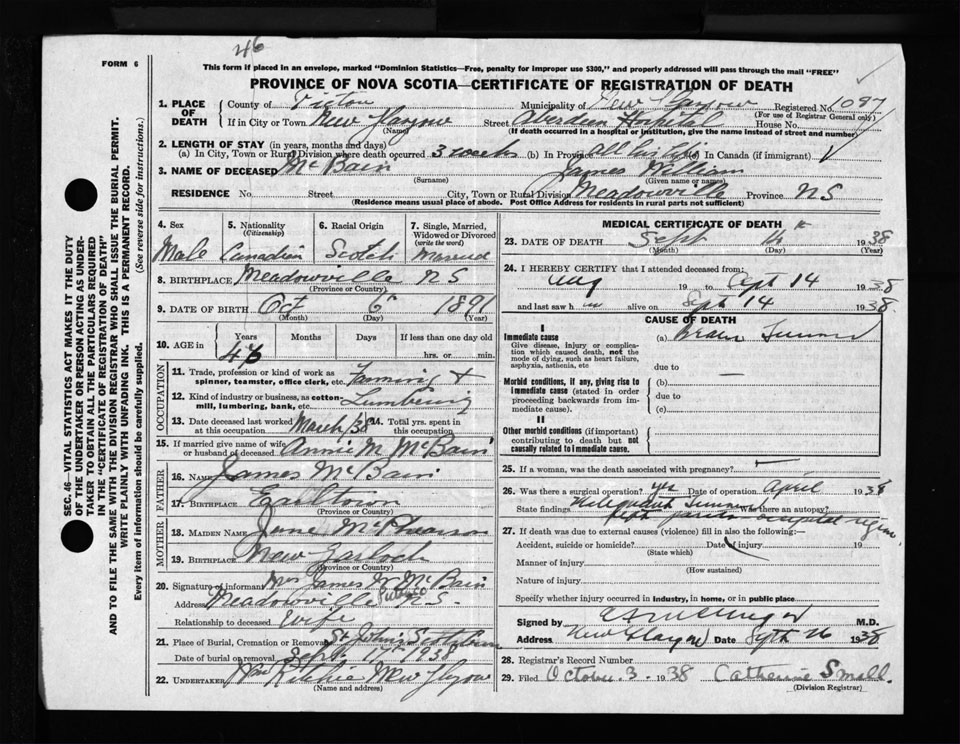 46
FORM 6
This form if placed in an envelope, marked "Dominion Statistics—Free, penalty for improper use $300," and properly addressed will pass through the mail "FREE"
PROVINCE OF NOVA SCOTIA—CERTIFICATE OF REGISTRATION OF DEATH
1. PLACE OF DEATH
County of Pictou Municipality of New Glasgow Registered No. 1087
(For use of Registrar General only)
If in City or Town New Glasgow Street Aberdeen Hospital House No.
(Name) (If death occurred in a hospital or institution, give the name instead of street and number)
2. LENGTH OF STAY (in years, months and days)
(a) In City, Town or Rural Division where death occurred 3 weeks (b) In Province all his life (c) In Canada (if immigrant)
3. NAME OF DECEASED McBain James William
(Surname) (Given name or names)
RESIDENCE No. Street City, Town or Rural Division Meadowville Province NS
(Residence means usual place of abode. Post Office Address for residents in rural parts not sufficient)
4. Sex 5. Nationality (Citizenship) 6. Racial Origin 7. Single, Married, Widowed or Divorced (write the word)
Male Canadian Scotch Married
8. BIRTHPLACE Meadowville NS
(Province or Country)
9. DATE OF BIRTH Oct 6 1891
(Month) (Day) (Year)
10. AGE in Years Months Days If less than one day
46 hrs. or min.
OCCUPATION
11. Trade, profession or kind of work as spinner, teamster, office clerk, etc. Farming +
12. Kind of industry or business, as cotton-mill, lumbering, bank, etc. Lumbering
13. Date deceased last worked at this occupation March/38 14. Total yrs. spent in this occupation
15. If married give name of wife or husband of deceased Annie M McBain
FATHER
16. NAME James McBain
17. BIRTHPLACE Earltown
(Province or Country)
MOTHER
18. MAIDEN NAME Jane McPhearson
19. BIRTHPLACE New Gairloch
(Province or Country)
20. Signature of informant Mrs James W McBain
Address Meadowville NS.
Relationship to deceased Wife
21. Place of Burial, Cremation or Removal St John's Scotsburn
Date of burial or removal Sept 17 1938
22. UNDERTAKER Ritchie New Glasgow
(Name and address)
MEDICAL CERTIFICATE OF DEATH
23. DATE OF DEATH Sept 14 1938
(Month) (Day) (Year)
24. I HEREBY CERTIFY that I attended deceased from:
Aug 19 to Sept 14 1938
and last saw h im alive on Sept 14 1938
CAUSE OF DEATH
I
Immediate cause
Give disease, injury or complication which caused death, not the mode of dying, such as heart failure, asphyxia, asthenia, etc
(a) Brain Tumor
due to
Morbid conditions, if any, giving rise to immediate cause (stated in order proceeding backwards from immediate cause).
(b)
due to
(c)
II
Other morbid conditions (if important) contributing to death but not causally related to immediate cause.
25. If a woman, was the death associated with pregnancy?
26. Was there a surgical operation? yes Date of operation April 1938
State findings Malignant Tumor Was there an autopsy?
occipital region
27. If death was due to external causes (violence) fill in also the following:—
Accident, suicide or homicide? Date of injury 19
(State which)
Manner of injury
(How sustained)
Nature of injury
Specify whether injury occurred in industry, in home, or in public place
Signed by M.D.
Address New Glasgow Date Septh 16 1938
28. Registrar's Record Number
29. Filed October 3 1938 Catherine Small.
(Division Registrar)
SEC. 46—VITAL STATISTICS ACT MAKES IT THE DUTY
OF THE UNDERTAKER OR PERSON ACTING AS UNDERTAKER TO OBTAIN ALL THE PARTICULARS REQUIRED
IN THE "CERTIFICATE OF REGISTRATION OF DEATH"
AND TO FILE THE SAME WITH THE DIVISION REGISTRAR WHO SHALL ISSUE THE BURIAL PERMIT.
WRITE PLAINLY WITH UNFADING INK. THIS IS A PERMANENT RECORD.
Every item of information should be carefully supplied. (See reverse side for instructions.)